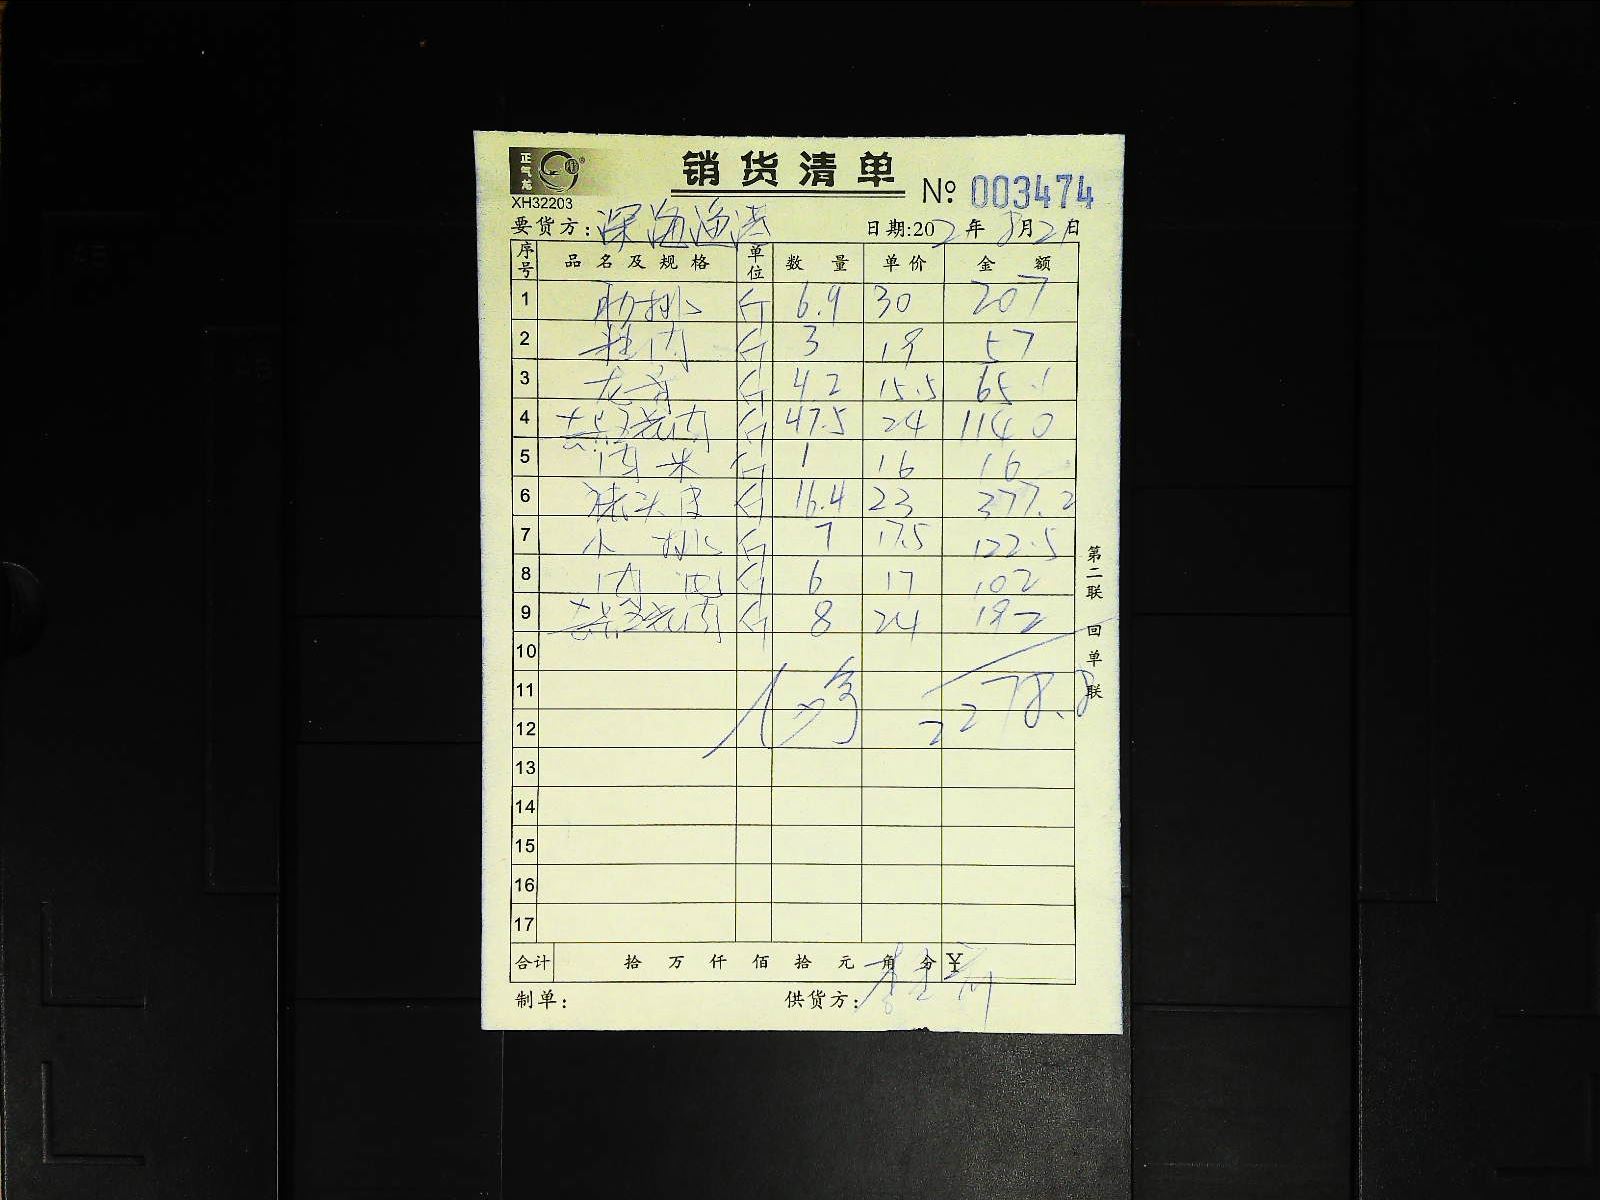 正气龙
销货清单
XH32203
№ 003474
要货方：深海渔港 日期:202年8月21日
序号 品名及规格 单位 数量 单价 金额
1 肋排 斤 6.9 30 207
2 斤 3 19 57
3 龙骨 斤 4.2 15.5 65.1
4 斤 47.5 24 1140
5 肉末 斤 1 16 16
6 猪头皮 斤 16.4 23 377.2
7 小排 斤 7 17.5 122.5
8 斤 6 17 102
9 斤 8 24 192
10
11 2278.8
12
13
14
15
16
17
合计 拾万仟佰拾元角分 ¥
制单： 供货方：
第二联 回单联